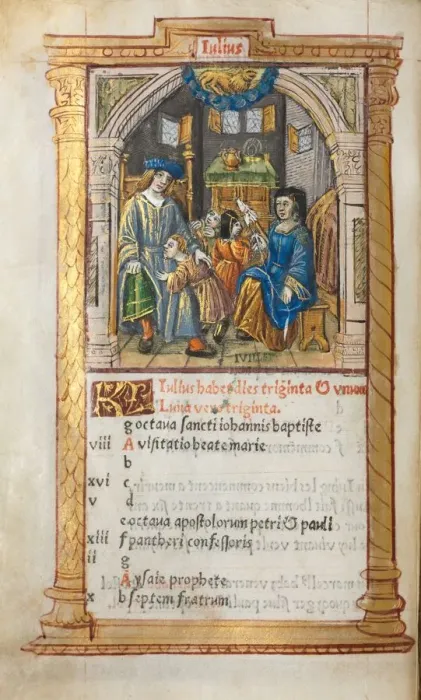 Iulius
IVLIVS
KL Iulius habet dies triginta & vnum
Luna vero triginta.
g octaua sancti iohannis baptiste
viii A visitatio beate marie
b
xvi c
v d
e octaua apostolorum petri & pauli
xiii f pantheri confessoris
ii g
A ysaie prophete
x b septem fratrum